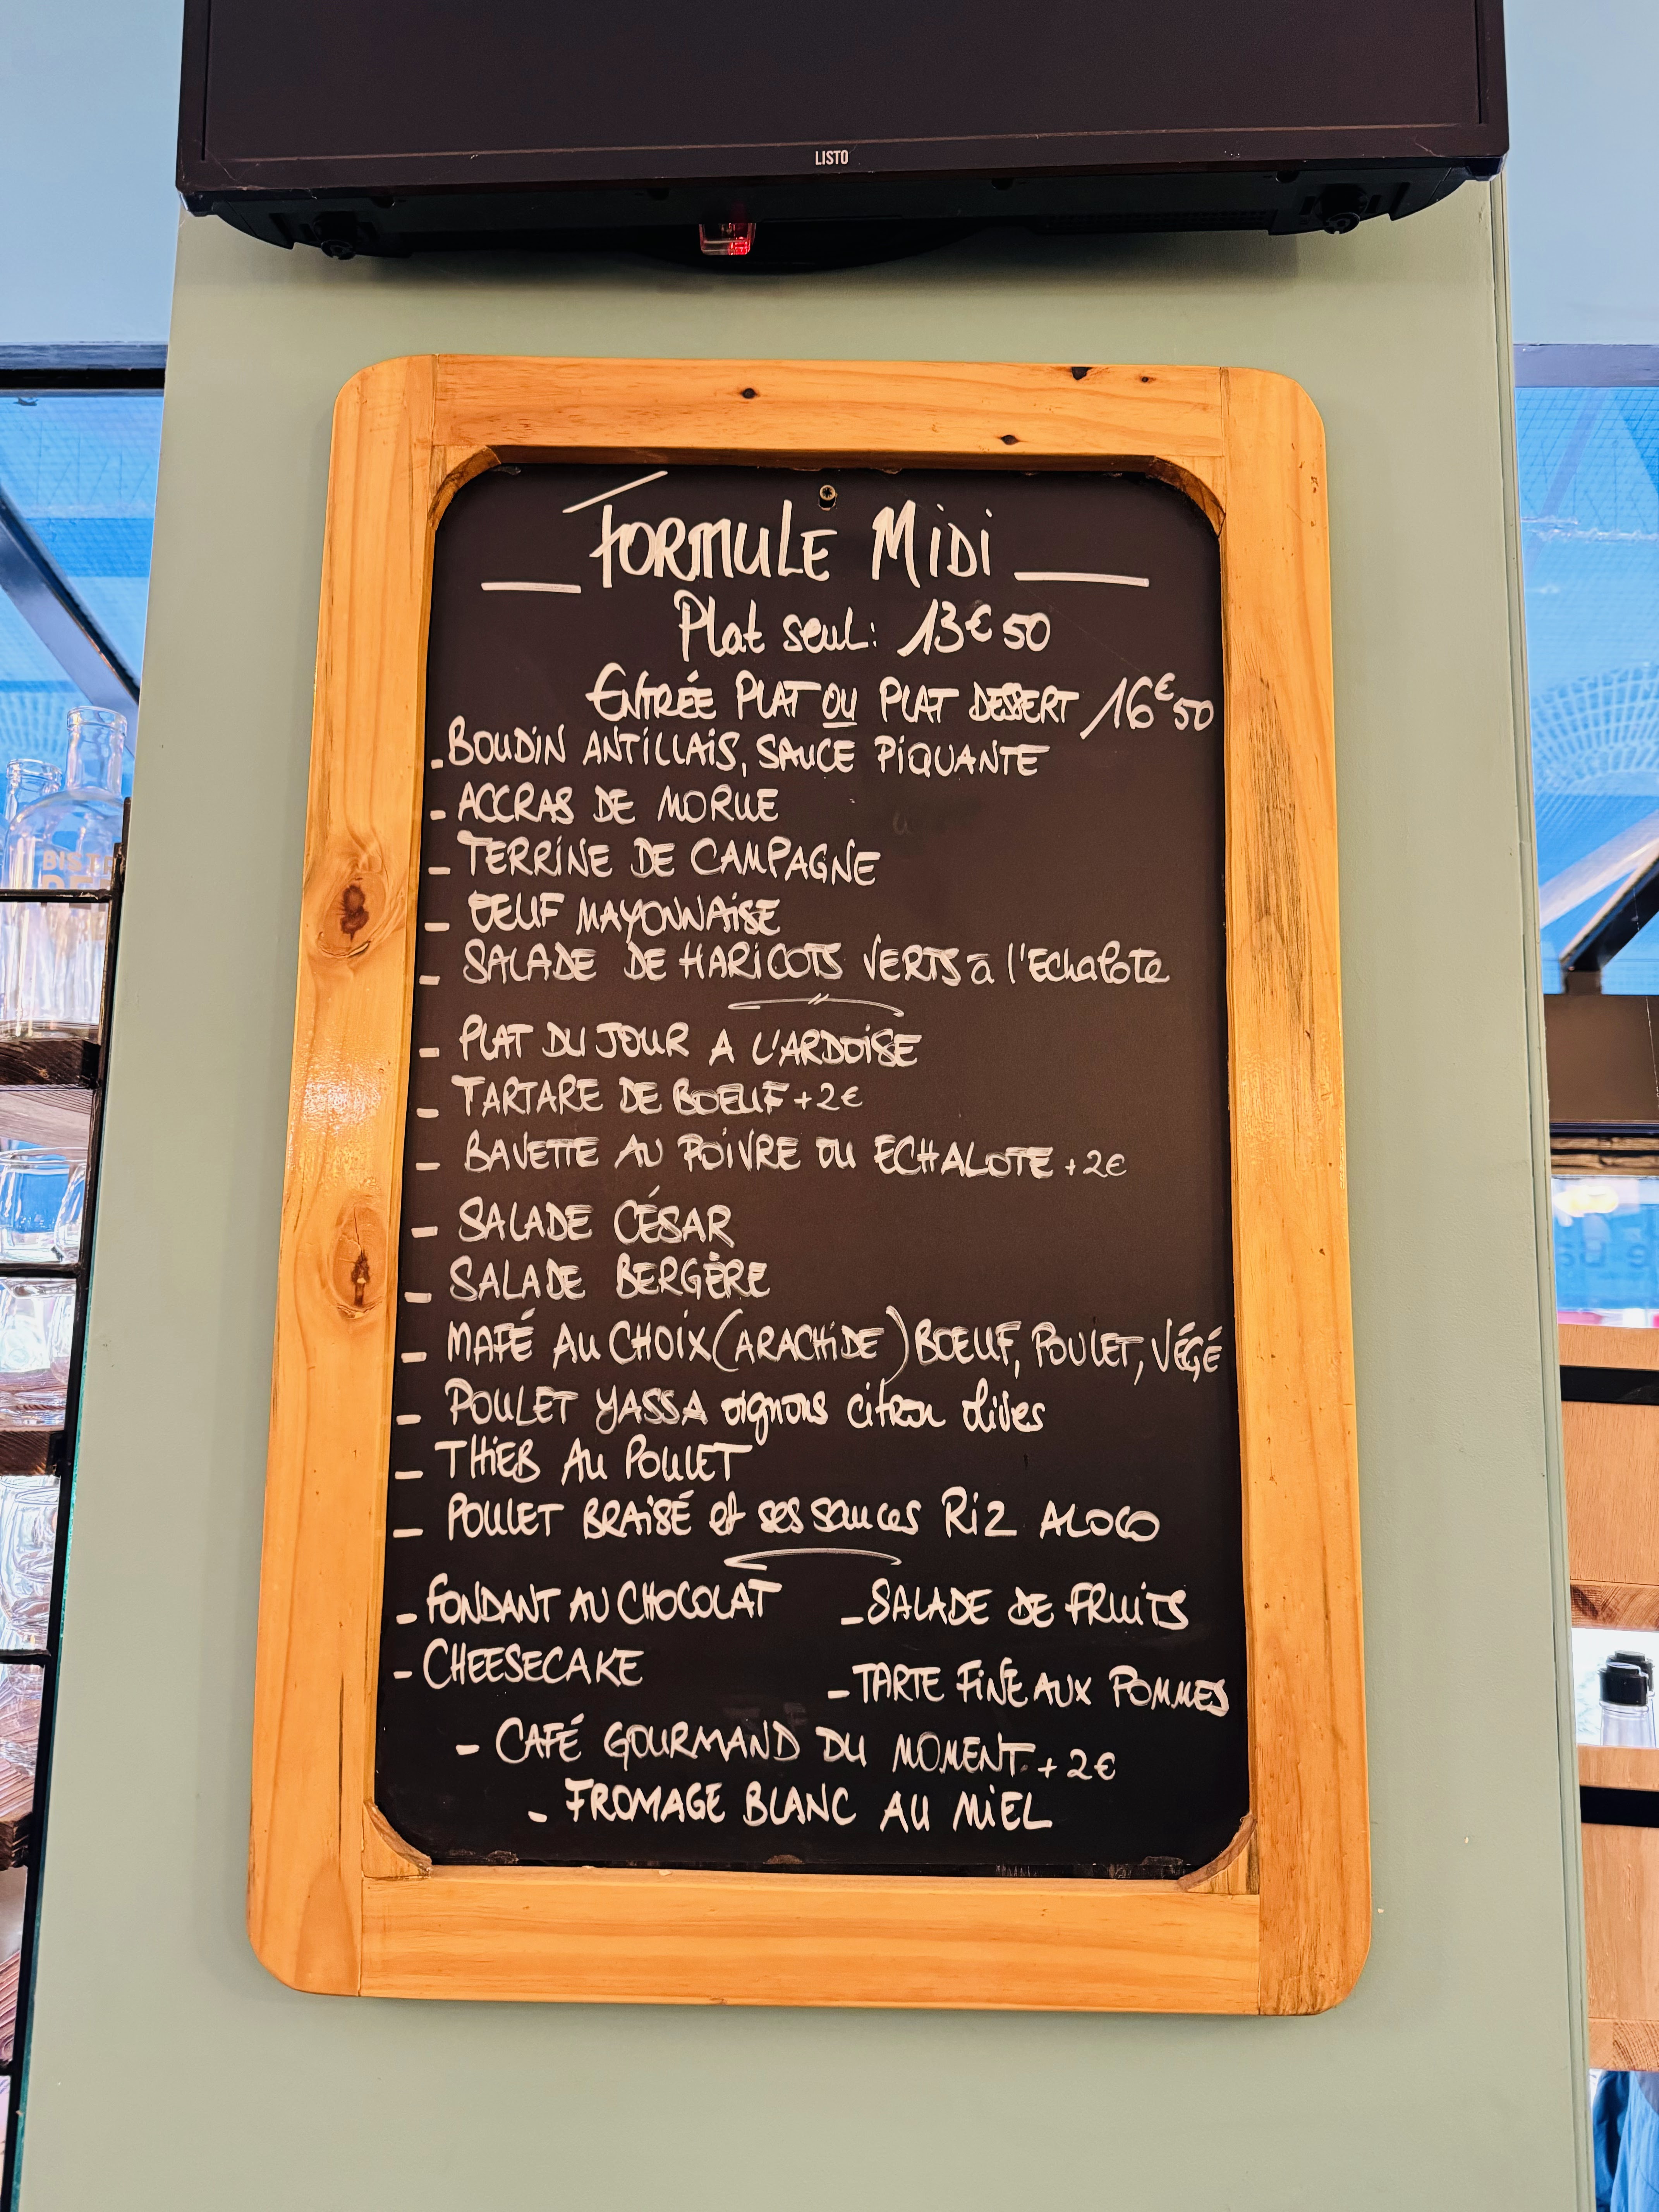 LISTO
FORMULE MiDi
Plat seul: 13€50
ENTRÉE PLAT OU PLAT DESSERT 16€50
- BOUDIN ANTILLAIS, SAUCE PIQUANTE
- ACCRAS DE MORUE
- TERRINE DE CAMPAGNE
- OEUF MAYONNAISE
- SALADE DE HARICOTS VERTS à l'Echalote
- PLAT DU JOUR A L'ARDOISE
- TARTARE DE BOEUF +2€
- BAVETTE AU POIVRE OU ECHALOTE +2€
- SALADE CÉSAR
- SALADE BERGÈRE
- MAFÉ AU CHOIX (ARACHIDE) BOEUF, POULET, VÉGÉ
- POULET YASSA oignons citron olives
- THIEB AU POULET
- POULET BRAISÉ et ses sauces RIZ ALOCO
- FONDANT AU CHOCOLAT
- SALADE DE FRUITS
- CHEESECAKE
- TARTE FINE AUX POMMES
- CAFÉ GOURMAND DU MOMENT +2€
- FROMAGE BLANC AU MIEL